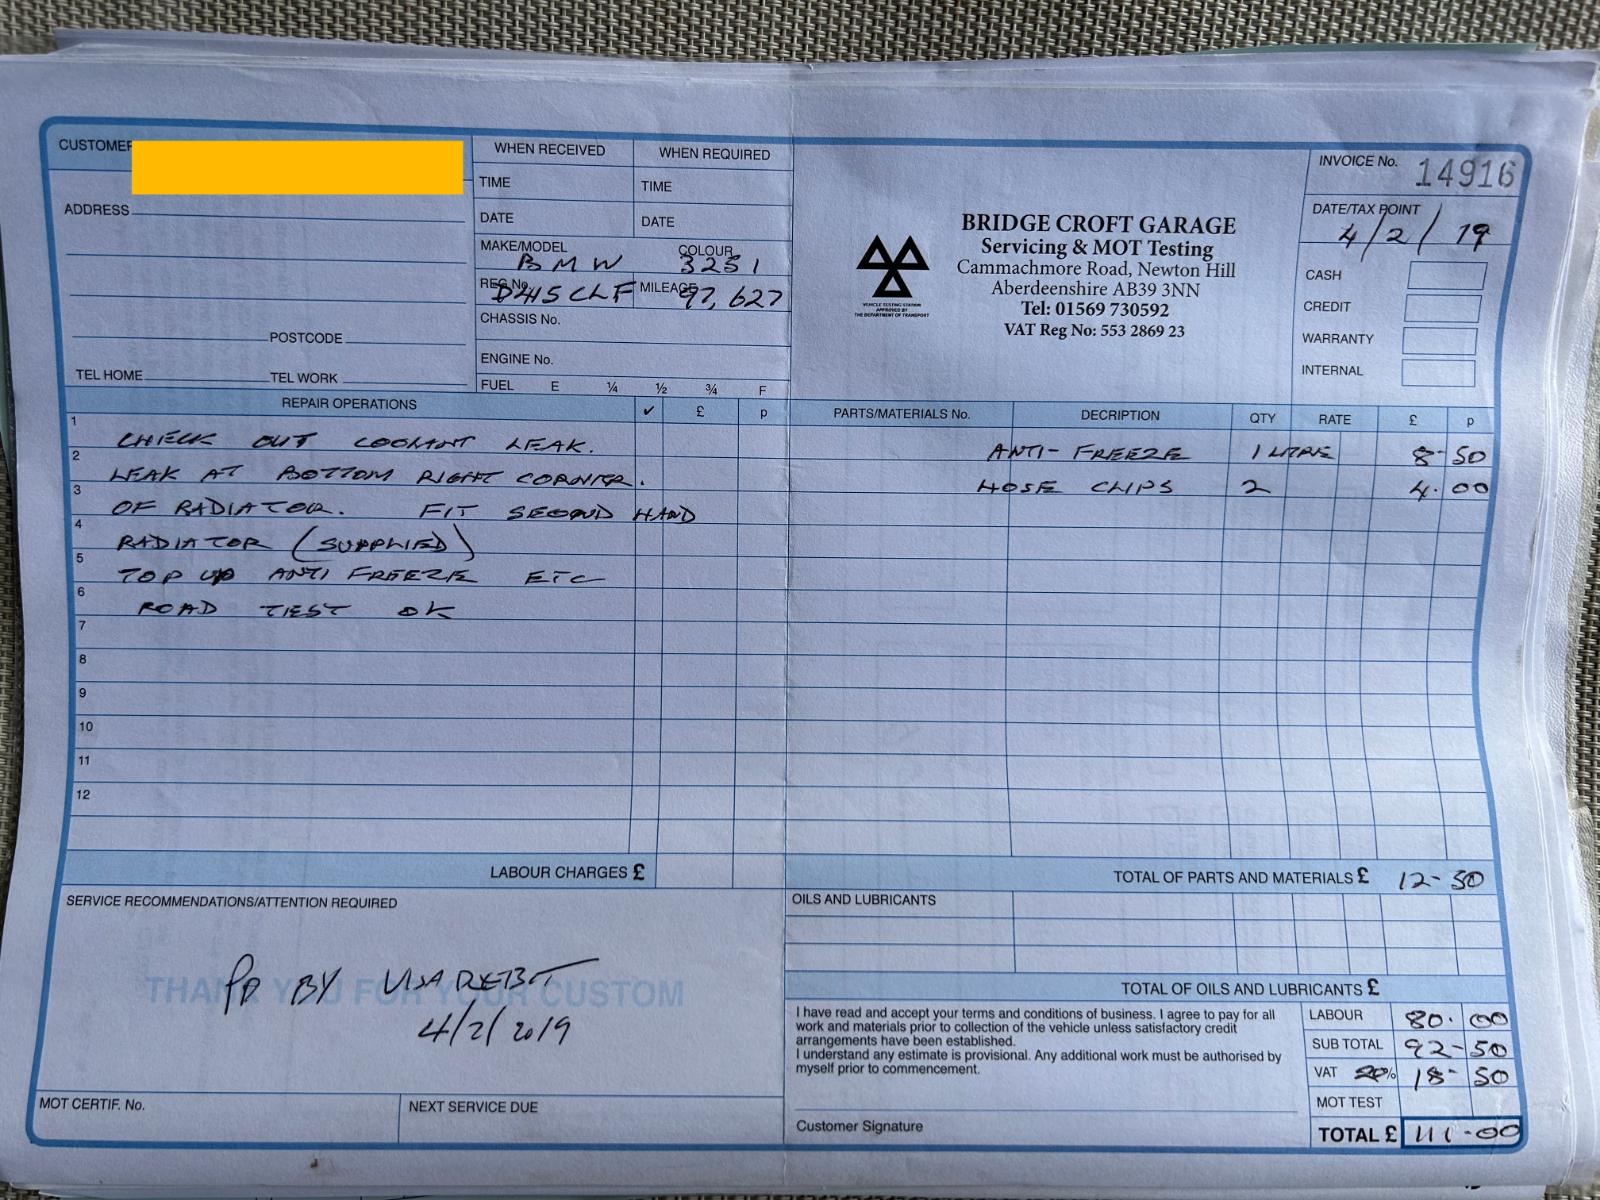 CUSTOMER
ADDRESS
POSTCODE
TEL HOME TEL WORK
WHEN RECEIVED WHEN REQUIRED
TIME TIME
DATE DATE
MAKE/MODEL COLOUR
BMW 325i
REG No. D415CLF MILEAGE 97,627
CHASSIS No.
ENGINE No.
FUEL E ¼ ½ ¾ F
VEHICLE TESTING STATION
APPROVED BY
THE DEPARTMENT OF TRANSPORT
BRIDGE CROFT GARAGE
Servicing & MOT Testing
Cammachmore Road, Newton Hill
Aberdeenshire AB39 3NN
Tel: 01569 730592
VAT Reg No: 553 2869 23
INVOICE No. 14916
DATE/TAX POINT
4/2/19
CASH
CREDIT
WARRANTY
INTERNAL
REPAIR OPERATIONS ✓ £ p
1 CHECK OUT COOLANT LEAK.
2 LEAK AT BOTTOM RIGHT CORNER.
3 OF RADIATOR. FIT SECOND HAND
4 RADIATOR (SUPPLIED)
5 TOP UP ANTI FREEZE ETC
6 ROAD TEST OK
7
8
9
10
11
12
LABOUR CHARGES £
PARTS/MATERIALS No. DECRIPTION QTY RATE £ p
ANTI-FREEZE 1 LITRE 8-50
HOSE CLIPS 2 4.00
TOTAL OF PARTS AND MATERIALS £ 12-50
SERVICE RECOMMENDATIONS/ATTENTION REQUIRED
THANK YOU FOR YOUR CUSTOM
PD BY VISA DEBIT
4/2/2019
MOT CERTIF. No. NEXT SERVICE DUE
OILS AND LUBRICANTS
TOTAL OF OILS AND LUBRICANTS £
I have read and accept your terms and conditions of business. I agree to pay for all
work and materials prior to collection of the vehicle unless satisfactory credit
arrangements have been established.
I understand any estimate is provisional. Any additional work must be authorised by
myself prior to commencement.
Customer Signature
LABOUR 80.00
SUB TOTAL 92-50
VAT 20% 18-50
MOT TEST
TOTAL £ 111-00